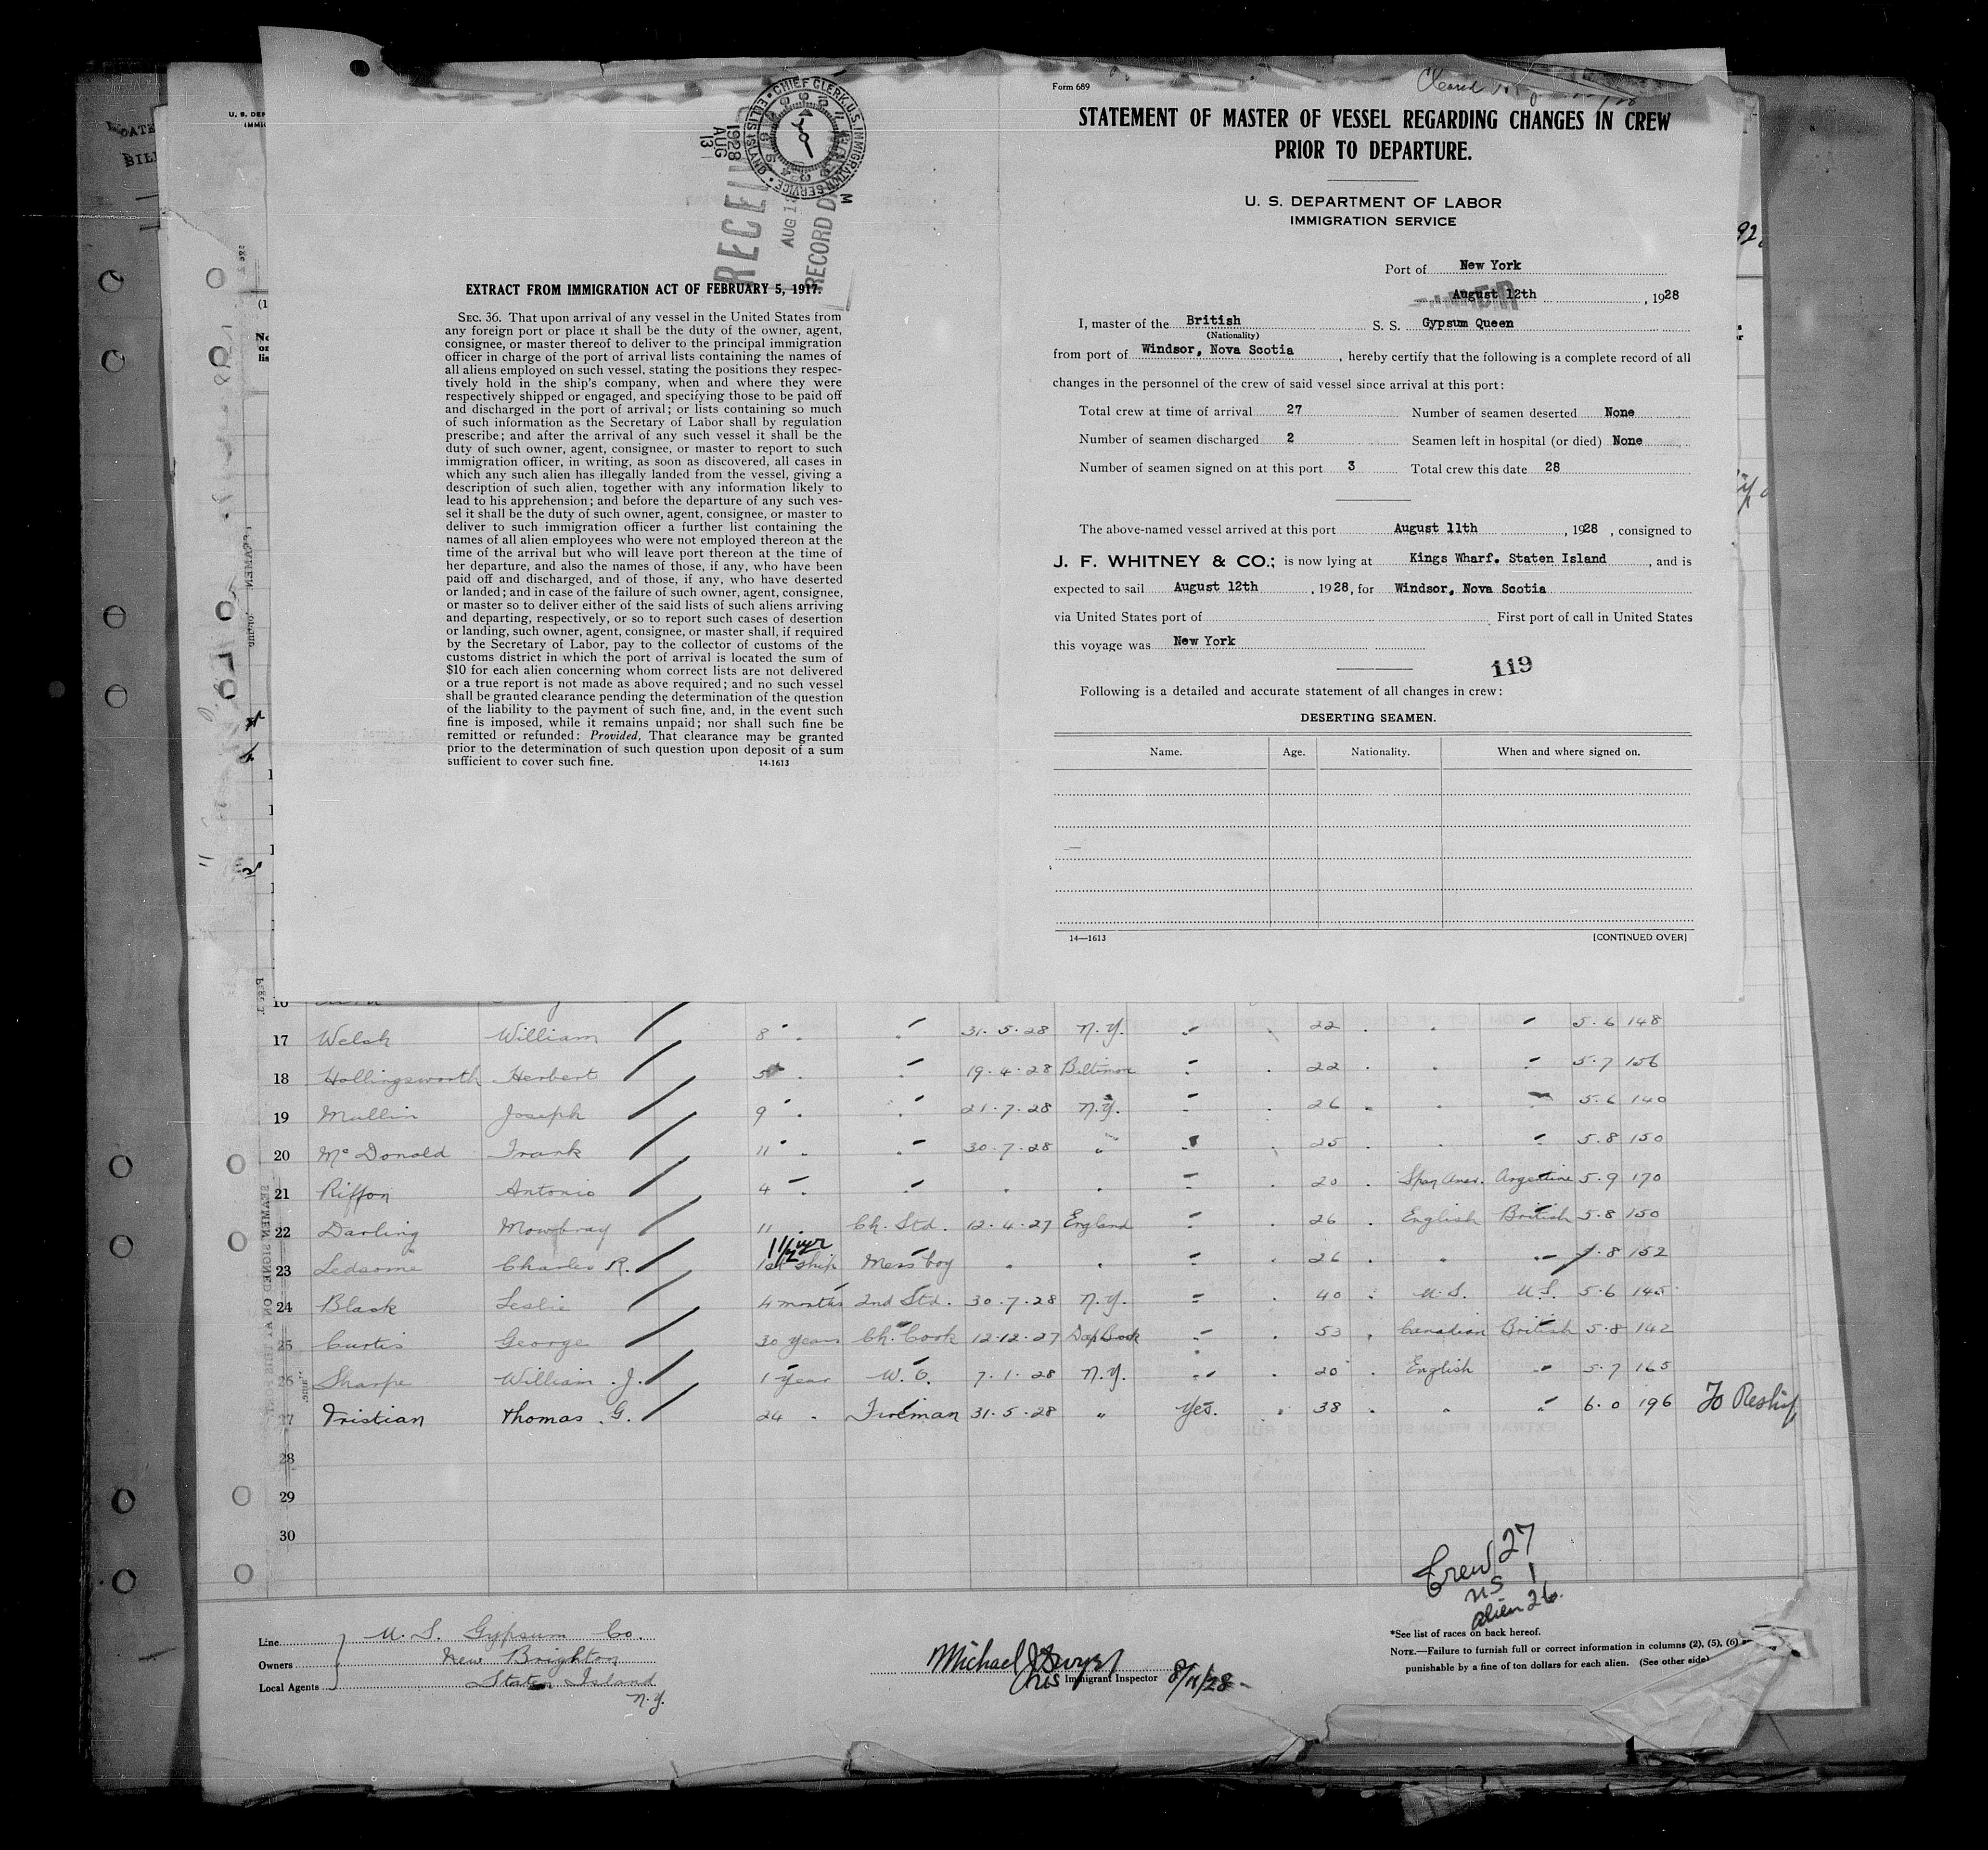 U. S. DEP
IMMIG
CHIEF CLERK, U.S. IMMIGRATION SERVICE • ELLIS ISLAND •
1928
AUG
13
AUG 13
RECORD D
EXTRACT FROM IMMIGRATION ACT OF FEBRUARY 5, 1917.
SEC. 36. That upon arrival of any vessel in the United States from
any foreign port or place it shall be the duty of the owner, agent,
consignee, or master thereof to deliver to the principal immigration
officer in charge of the port of arrival lists containing the names of
all aliens employed on such vessel, stating the positions they respec-
tively hold in the ship's company, when and where they were
respectively shipped or engaged, and specifying those to be paid off
and discharged in the port of arrival; or lists containing so much
of such information as the Secretary of Labor shall by regulation
prescribe; and after the arrival of any such vessel it shall be the
duty of such owner, agent, consignee, or master to report to such
immigration officer, in writing, as soon as discovered, all cases in
which any such alien has illegally landed from the vessel, giving a
description of such alien, together with any information likely to
lead to his apprehension; and before the departure of any such ves-
sel it shall be the duty of such owner, agent, consignee, or master to
deliver to such immigration officer a further list containing the
names of all alien employees who were not employed thereon at the
time of the arrival but who will leave port thereon at the time of
her departure, and also the names of those, if any, who have been
paid off and discharged, and of those, if any, who have deserted
or landed; and in case of the failure of such owner, agent, consignee,
or master so to deliver either of the said lists of such aliens arriving
and departing, respectively, or so to report such cases of desertion
or landing, such owner, agent, consignee, or master shall, if required
by the Secretary of Labor, pay to the collector of customs of the
customs district in which the port of arrival is located the sum of
$10 for each alien concerning whom correct lists are not delivered
or a true report is not made as above required; and no such vessel
shall be granted clearance pending the determination of the question
of the liability to the payment of such fine, and, in the event such
fine is imposed, while it remains unpaid; nor shall such fine be
remitted or refunded: Provided, That clearance may be granted
prior to the determination of such question upon deposit of a sum
sufficient to cover such fine. 14-1613
Form 689
STATEMENT OF MASTER OF VESSEL REGARDING CHANGES IN CREW
PRIOR TO DEPARTURE.
U. S. DEPARTMENT OF LABOR
IMMIGRATION SERVICE
Port of New York
August 12th, 1928
I, master of the British S. S. Gypsum Queen
(Nationality)
from port of Windsor, Nova Scotia, hereby certify that the following is a complete record of all
changes in the personnel of the crew of said vessel since arrival at this port:
Total crew at time of arrival 27 Number of seamen deserted None
Number of seamen discharged 2 Seamen left in hospital (or died) None
Number of seamen signed on at this port 3 Total crew this date 28
The above-named vessel arrived at this port August 11th, 1928, consigned to
J. F. WHITNEY & CO.; is now lying at Kings Wharf. Staten Island, and is
expected to sail August 12th, 1928, for Windsor, Nova Scotia
via United States port of First port of call in United States
this voyage was New York
119
Following is a detailed and accurate statement of all changes in crew:
DESERTING SEAMEN.
Name. Age. Nationality. When and where signed on.
14—1613 [CONTINUED OVER]
16
17 Welsh William 8 " " 31.5.28 N.Y. " 22 " " 5.6 148
18 Hollingsworth Herbert 5 " " 19.4.28 Biltimore " 22 " " 5.7 156
19 Mullin Joseph 9 " " 21.7.28 N.Y. " 26 " " 5.6 140
20 McDonald Frank 11 " " 30.7.28 " " 25 " " 5.8 150
21 Riffon Antonio 4 " " " " " 20 Span Amer. Argentine 5.9 170
22 Darling Mowbray 11 " Ch. Std. 12.4.27 England " 26 English British 5.8 150
23 Ledsome Charles R. 1st ship 1 1/2 yr Mess boy " " " 26 " " 5.8 152
24 Black Leslie 4 months 2nd Std. 30.7.28 N.Y. " 40 U.S. U.S. 5.6 145
25 Curtis George 30 years Ch. Cook 12.12.27 " 53 Canadian British 5.8 142
26 Sharpe William J. 1 year W.O. 7.1.28 N.Y. " 20 English " 5.7 165
27 Tristian Thomas G. 24 " Fireman 31.5.28 " Yes. " 38 " " 6.0 196 To Reship
28
29
30
Crew 27
US 1
alien 26
Line U.S. Gypsum Co.
Owners New Brighton
Local Agents Staten Island
N.Y.
Michael J Dwyer
Immigrant Inspector 8/11/28
*See list of races on back hereof.
NOTE.—Failure to furnish full or correct information in columns (2), (5), (6)
punishable by a fine of ten dollars for each alien. (See other side)